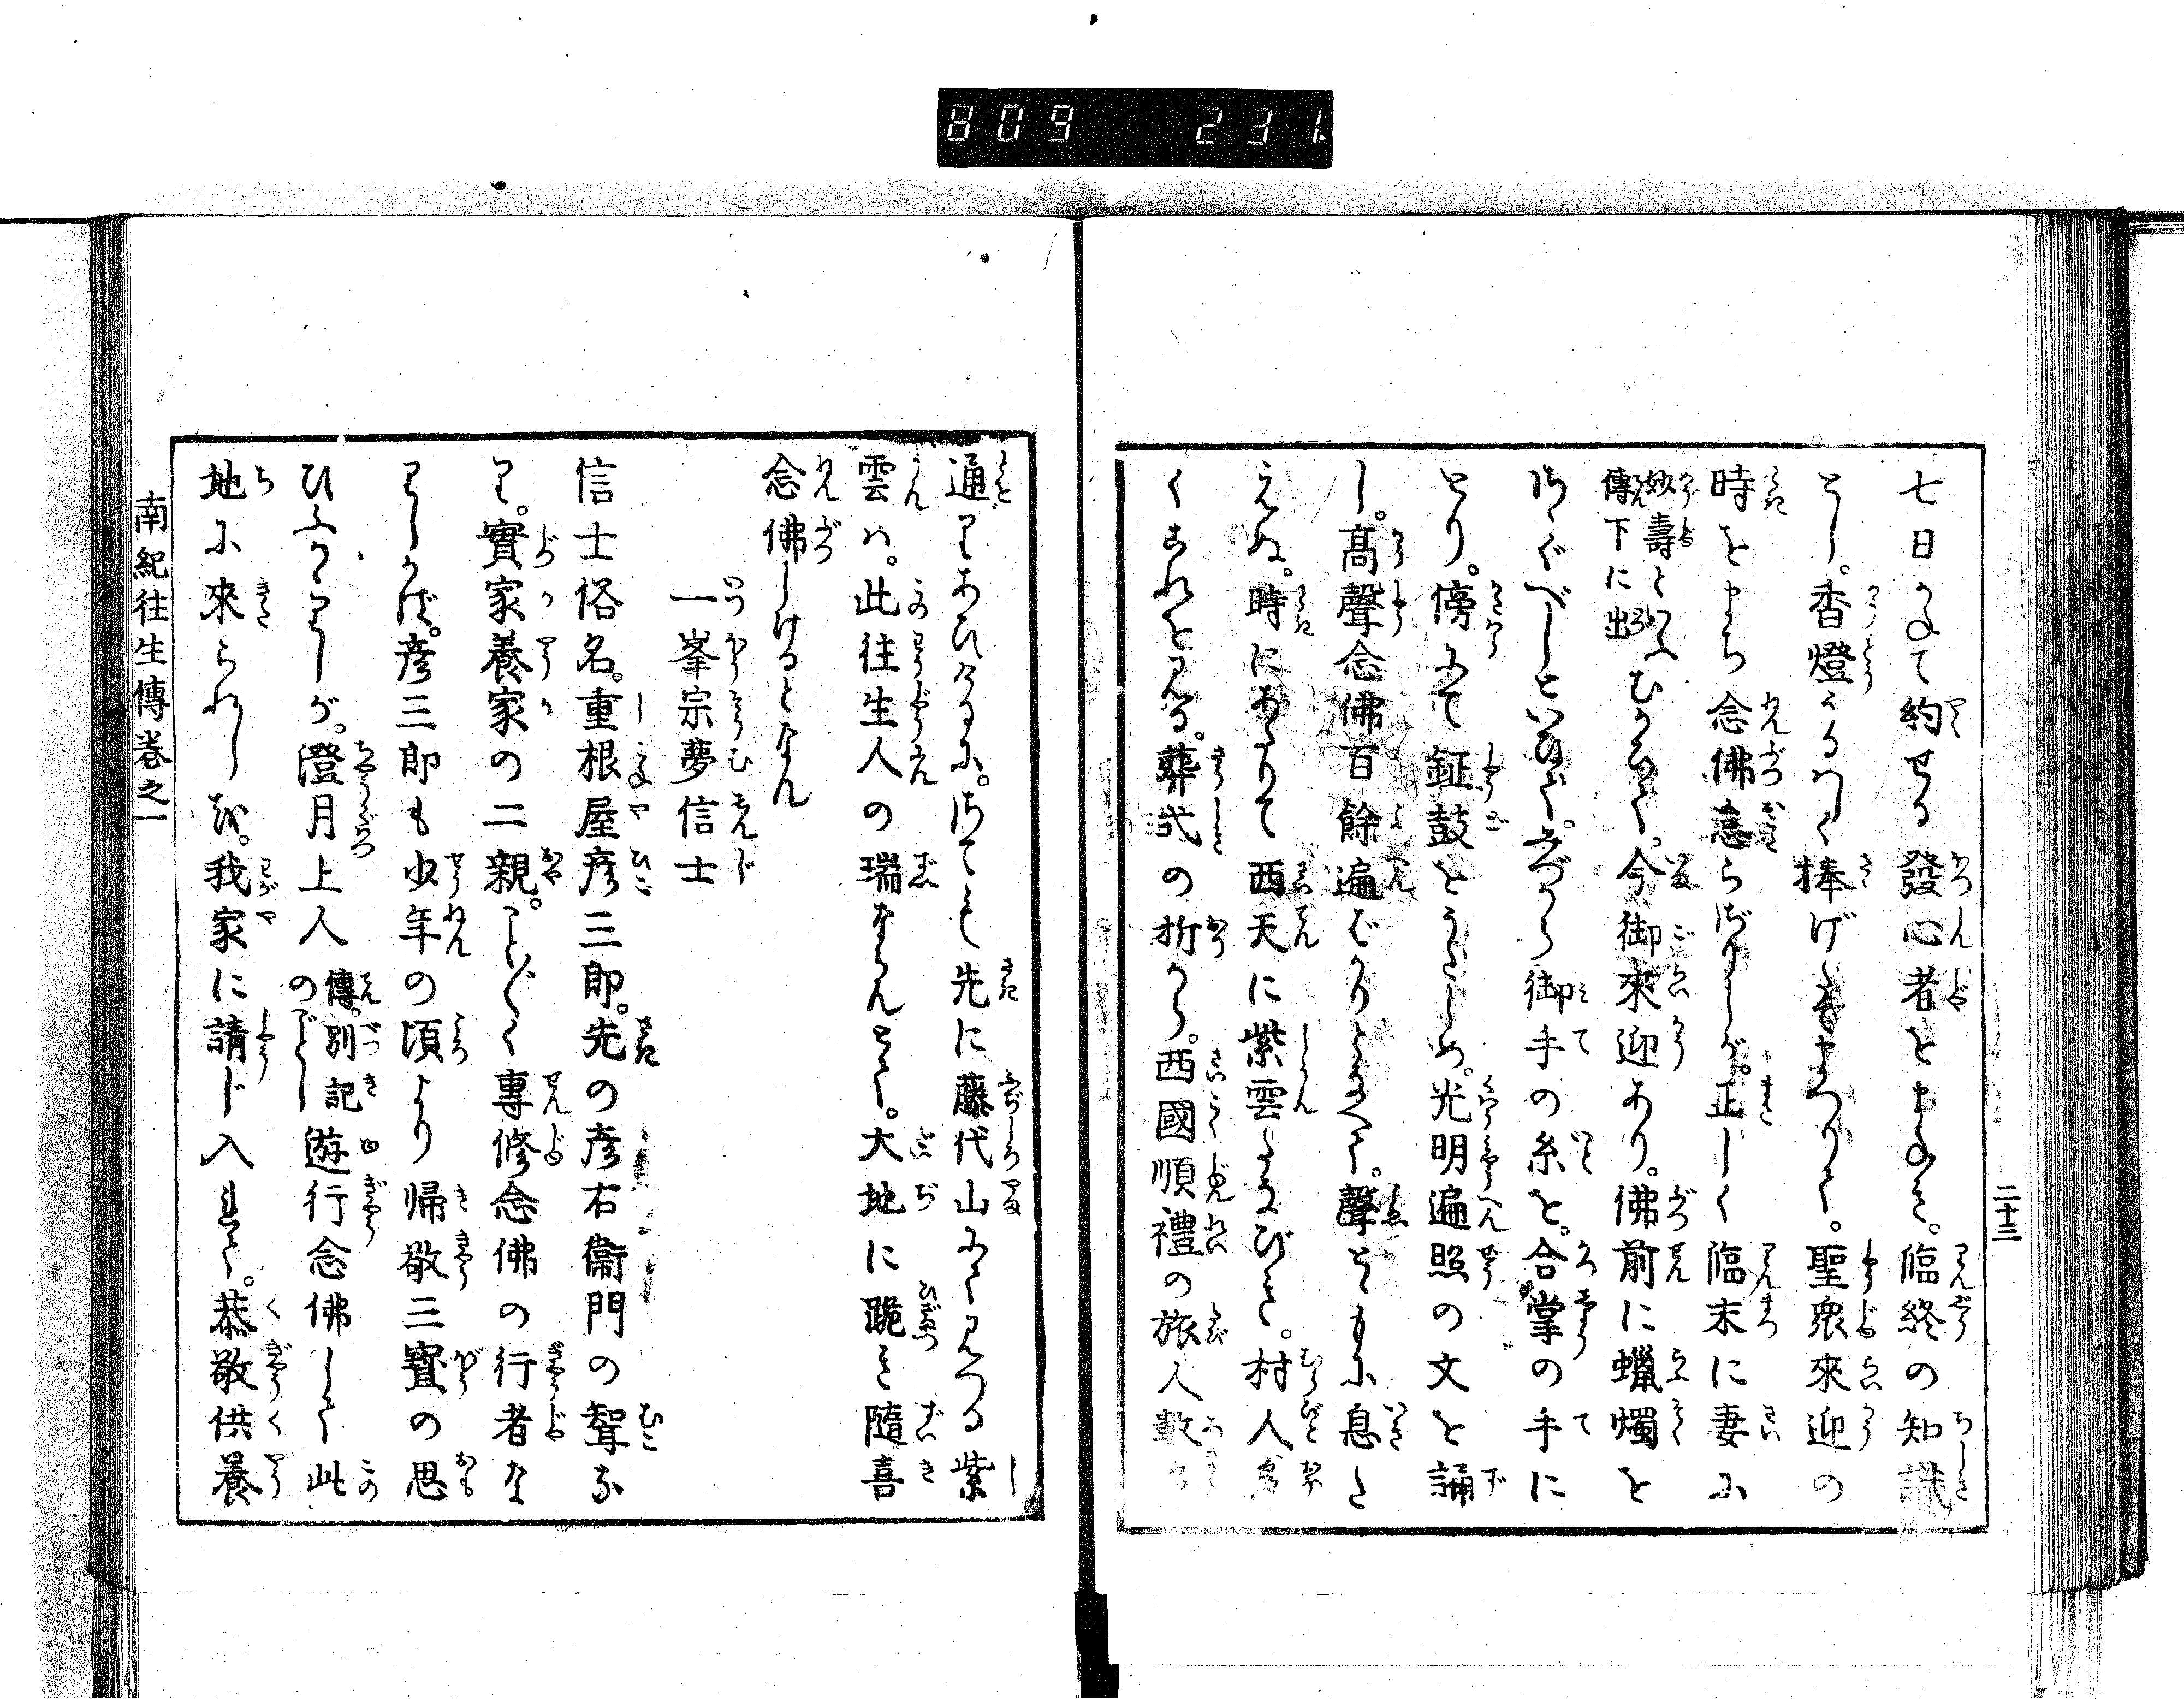 809 231
二十三
七日かねて約せる發心者をまねき。臨終の知識
とし。香燈うるはしく捧げたてまつりて。聖衆來迎の
時をまち念佛怠らざりしが。正しく臨末に妻に
妙壽といふ
傳下に出
むかひて。今御來迎あり。佛前に蝋燭を
つぐべしといひて。みづから御手の糸を。合掌の手に
とり。傍にて鉦鼓をうたしめ。光明遍照の文を誦
し。高聲念佛百餘遍ばかりとなへて。聲とともに息た
えぬ。時にあたりて西天に紫雲たなびきて。村人
くこれを見る。葬式の折から。西國順禮の旅人數
通りあひけるに。さても先に藤代山にて見つる紫
雲は。此往生人の瑞ならんとて。大地に跪き隨喜
念佛しけるとなん
一峯宗夢信士
信士俗名。重根屋彦三郎。先の彦右衞門の聟な
り。實家養家の二親。ことごとく專修念佛の行者な
りしかば。彦三郎も少年の頃より歸敬三寶の思
ひふかかりしが。澄月上人
傳。別記
のごとし
遊行念佛して此
地に來られしを。我家に請じ入れて。恭敬供養
南紀往生傳卷之一